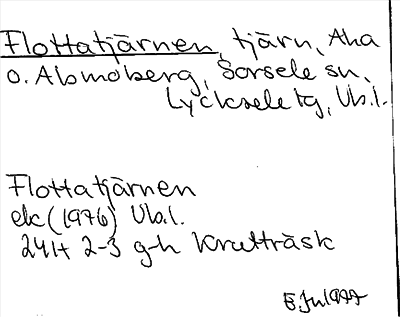 Flottatjärnen, tjärn, Aha
o. Abmoberg, Sorsele sn,
Lycksele tg, Vb.l.
Flottatjärnen
ek (1976) Vb.l.
24H 2-3 g-h Kraddträsk